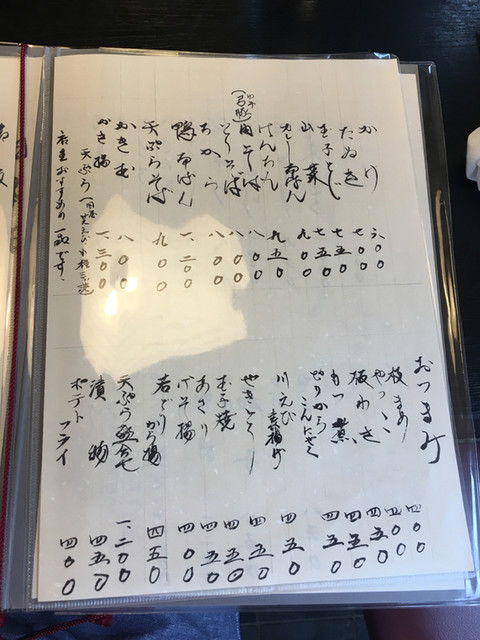 かけ 六〇〇
たぬき 七〇〇
玉子とじ 七五〇
山菜 七五〇
カレーなんばん 九五〇
けんちん 九〇〇
肉そば 八〇〇
とりそば 八〇〇
ちから 八〇〇
鴨なんばん 一、二〇〇
天ぷらそば 九〇〇
かき玉 八〇〇
かき揚天ぷら 一、三〇〇
店主おすすめの一品です。
おつまみ
枝まめ 四〇〇
やっこ 四〇〇
板わさ 四五〇
もつ煮 四五〇
ぴりからこんにゃく 四五〇
川えび素揚げ 四五〇
やきとり 四五〇
玉子焼 四五〇
あさり 四五〇
げそ揚 四〇〇
若どりから揚 四五〇
天ぷら盛合せ 一、二〇〇
漬物 四五〇
ポテトフライ 四〇〇